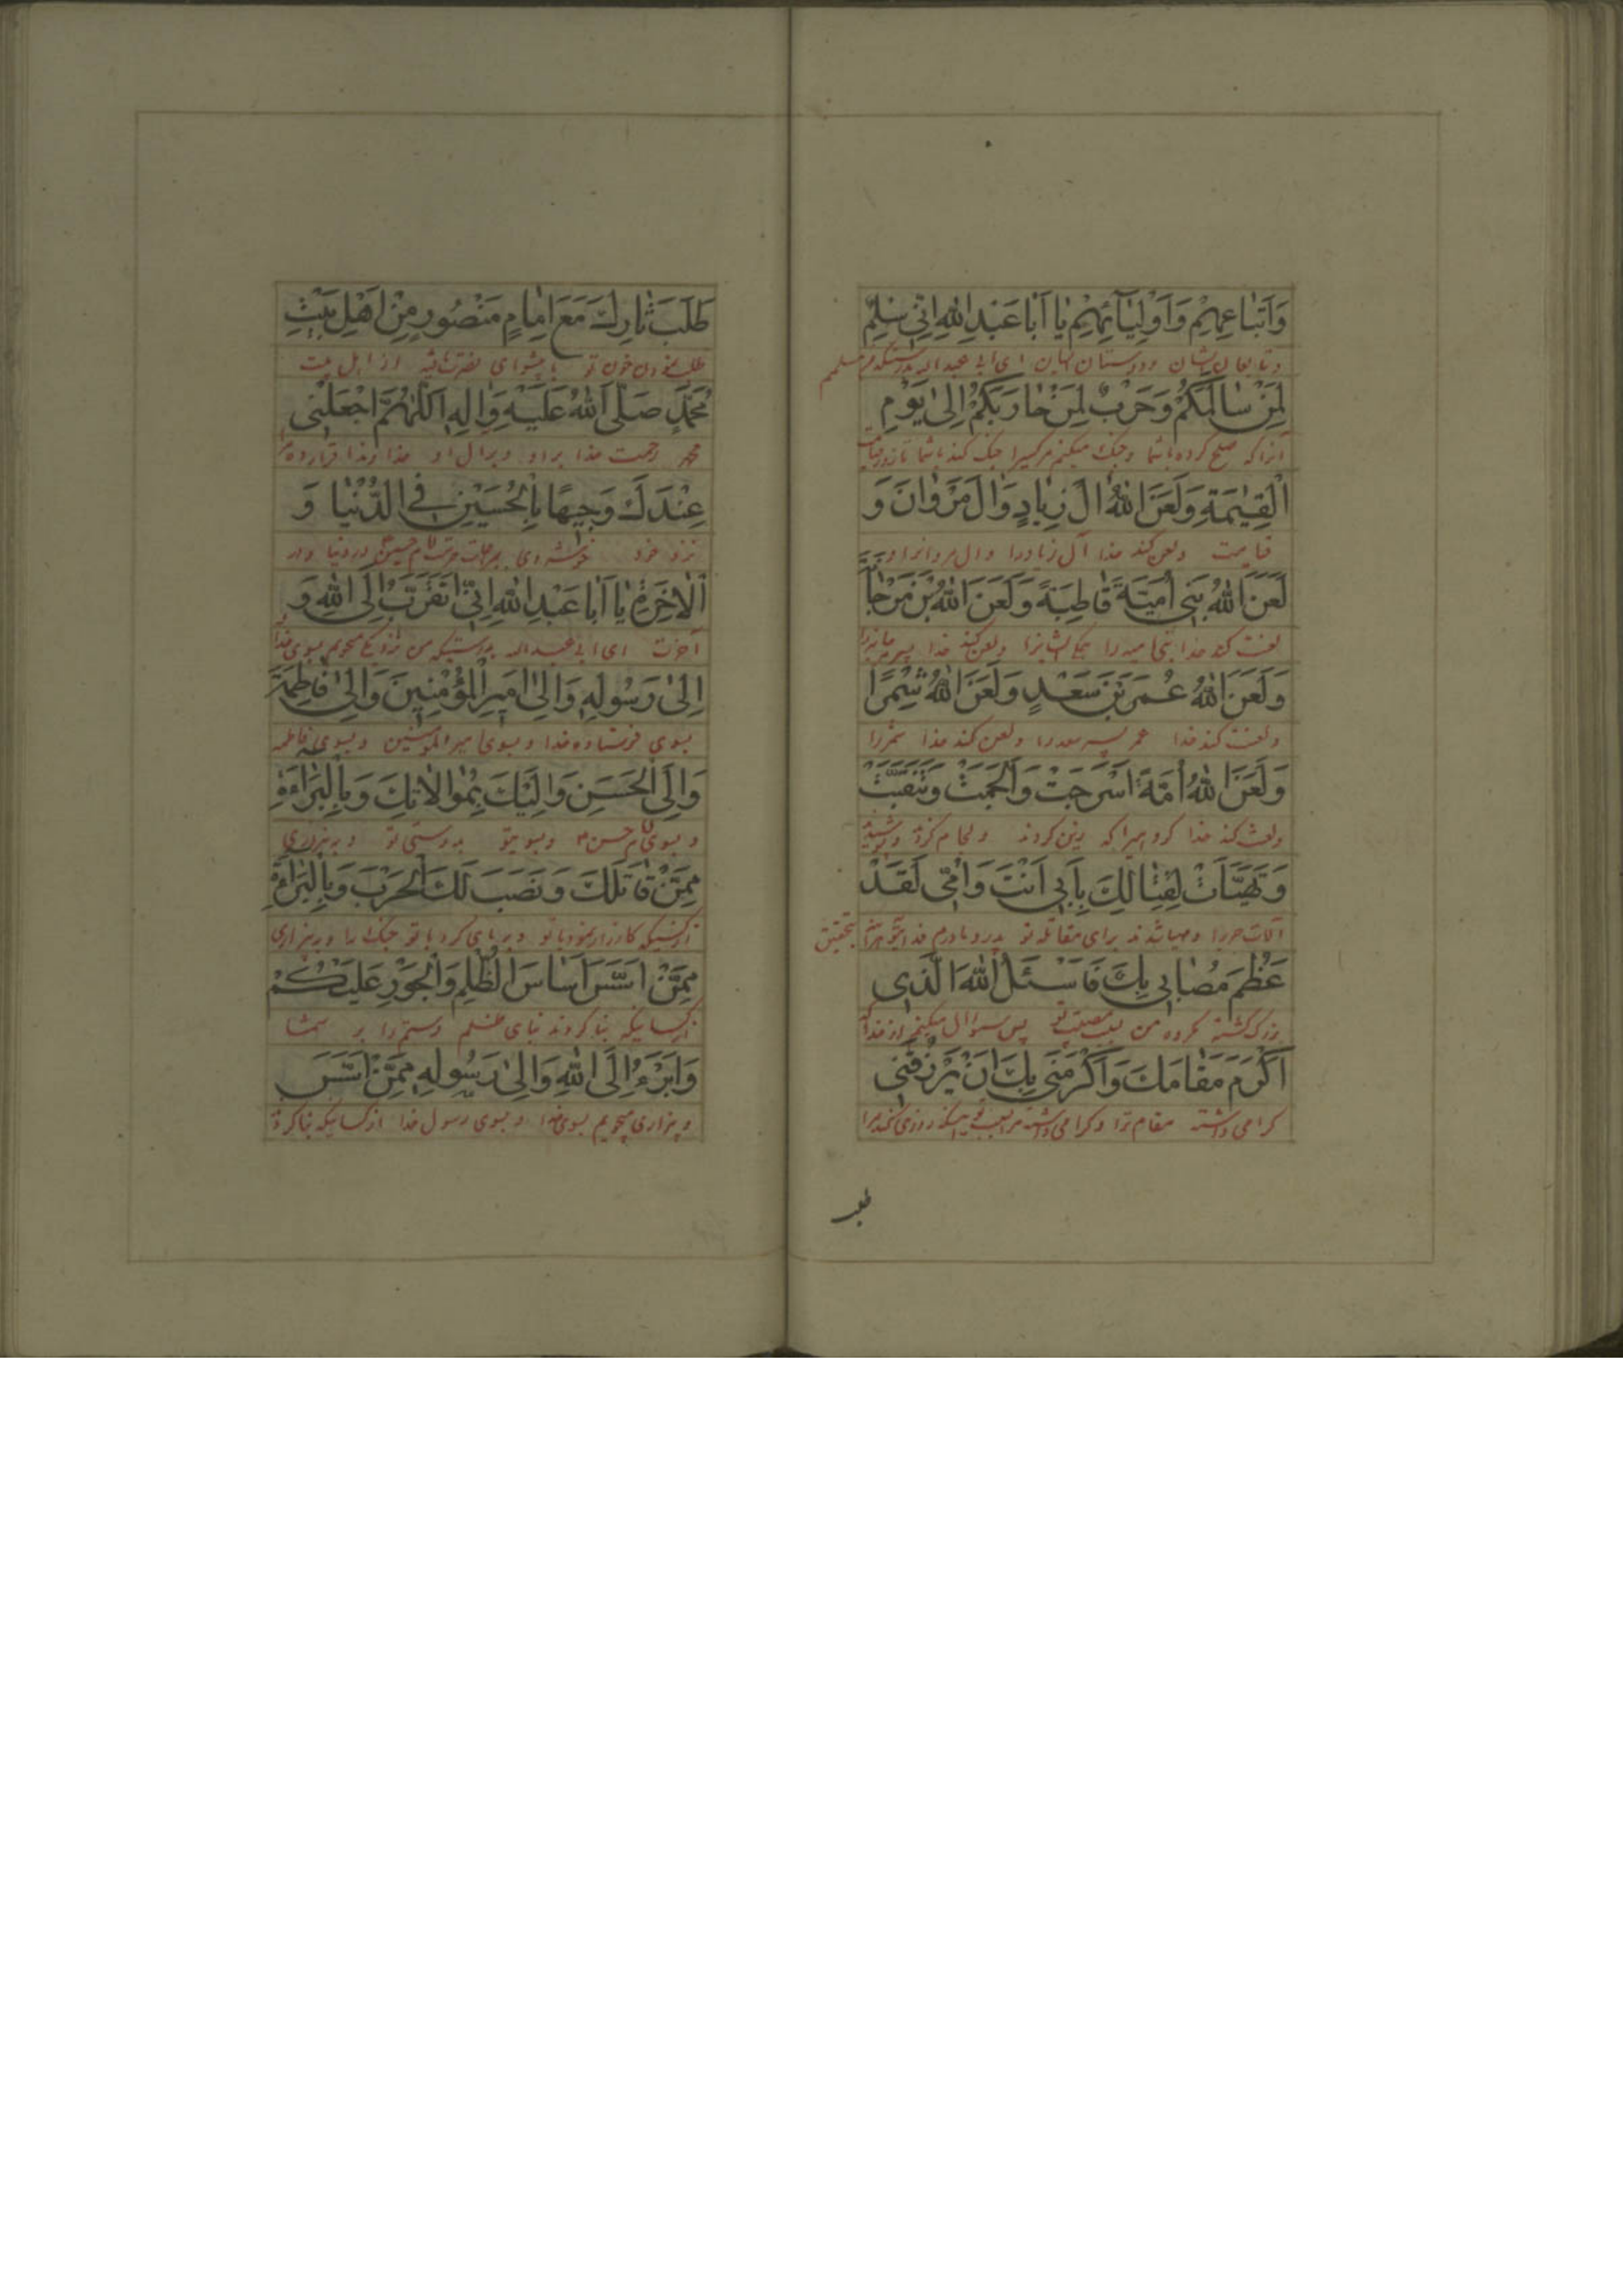 وَاَتْبَاعِهِمْ وَاَوْلِیٰائِهِمْ یٰا اَبٰا عَبْدِ اللّٰهِ اِنّی سِلْمٌ
وتابعان ایشان ودوستان ایشان ای ابی عبد اله بدرستیکه من سلمم
لِمَنْ سٰالَمَكُمْ وَحَرْبٌ لِمَنْ حٰارَبَكُمْ اِلیٰ یَوْمِ
آنرا که صلح کرده باشما وجنك میکنم هر کسیرا جنك کند باشما تا روز قیامت
الْقِیٰمَةِ وَلَعَنَ اللّٰهُ اٰلَ زِیٰادٍ وَاٰلَ مَرْوٰانَ وَ
قیامت ولعن کند خدا آل زیادرا وال مروانرا و
لَعَنَ اللّٰهُ بَنی اُمَیَّةَ قٰاطِبَةً وَلَعَنَ اللّٰهُ بْنَ مَرْجٰانَةَ
لعنت کند خدا بنی امیه را ولعن کند خدا پسر مرجانه را
وَلَعَنَ اللّٰهُ عُمَرَ بْنَ سَعْدٍ وَلَعَنَ اللّٰهُ شِمْرًا
ولعنت کند خدا عمر پسر سعد را ولعن کند خدا شمر را
وَلَعَنَ اللّٰهُ اُمَّةً اَسْرَجَتْ وَاَلْجَمَتْ وَتَنَقَّبَتْ
ولعنت کند خدا گروهیرا که زین کردند ولجام کردند وپوشیدند
وَتَهَیَّاَتْ لِقِتٰالِكَ بِاَبی اَنْتَ وَاُمّی لَقَدْ
آلات حربرا ومهیا شدند برای مقاتله تو پدر ومادرم فدای تو بتحقیق
عَظُمَ مُصٰابی بِكَ فَاَسْئَلُ اللّٰهَ الَّذی
بزرك گشته من بمصیبت تو پس سؤال میکنم از خدا
اَكْرَمَ مَقٰامَكَ وَاَكْرَمَنی بِكَ اَنْ یَرْزُقَنی
کرامی داشته مقام ترا وکرامی داشته مرا روزی کند مرا
طلب
طَلَبَ ثٰارِكَ مَعَ اِمٰامٍ مَنْصُورٍ مِنْ اَهْلِ بَیْتِ
طلب نمودن خون تو با پیشوای نصرت یافته از اهل بیت
مُحَمَّدٍ صَلَّی اللّٰهُ عَلَیْهِ وَاٰلِهِ اَللّٰهُمَّ اجْعَلْنی
محمد رحمت خدا بر او وبر ال او خداوندا قرار ده مرا
عِنْدَكَ وَجیهًا بِالْحُسَیْنِ فِی الدُّنْیٰا وَ
نزد خود در دنیا ودر
الْاٰخِرَةِ یٰا اَبٰا عَبْدِ اللّٰهِ اِنّی اَتَقَرَّبُ اِلَی اللّٰهِ وَ
آخرت ای ابی عبد اله بدرستیکه من نزدیکی میجویم بسوی خدا و
اِلیٰ رَسُولِهِ وَاِلیٰ اَمیرِ الْمُؤْمِنینَ وَاِلیٰ فٰاطِمَةَ
بسوی فرستاده خدا وبسوی امیر المؤمنین وبسوی فاطمه
وَاِلَی الْحَسَنِ وَاِلَیْكَ بِمُوٰالاٰتِكَ وَبِالْبَرٰاءَةِ
وبسوی امام حسن وبسوی تو بدوستی تو وببیزاری
مِمَّنْ قٰاتَلَكَ وَنَصَبَ لَكَ الْحَرْبَ وَبِالْبَرٰاءَةِ
از کسیکه کارزار نمود با تو وبر پای کرد با تو جنك را وببیزاری
مِمَّنْ اَسَّسَ اَسٰاسَ الظُّلْمِ وَالْجَوْرِ عَلَیْكُمْ
از کسانیکه بنا کردند بنای ظلم وستم را بر شما
وَاَبْرَءُ اِلَی اللّٰهِ وَاِلیٰ رَسُولِهِ مِمَّنْ اَسَّسَ
وبیزاری میجویم بسوی خدا وبسوی رسول خدا از کسانیکه بنا کرد